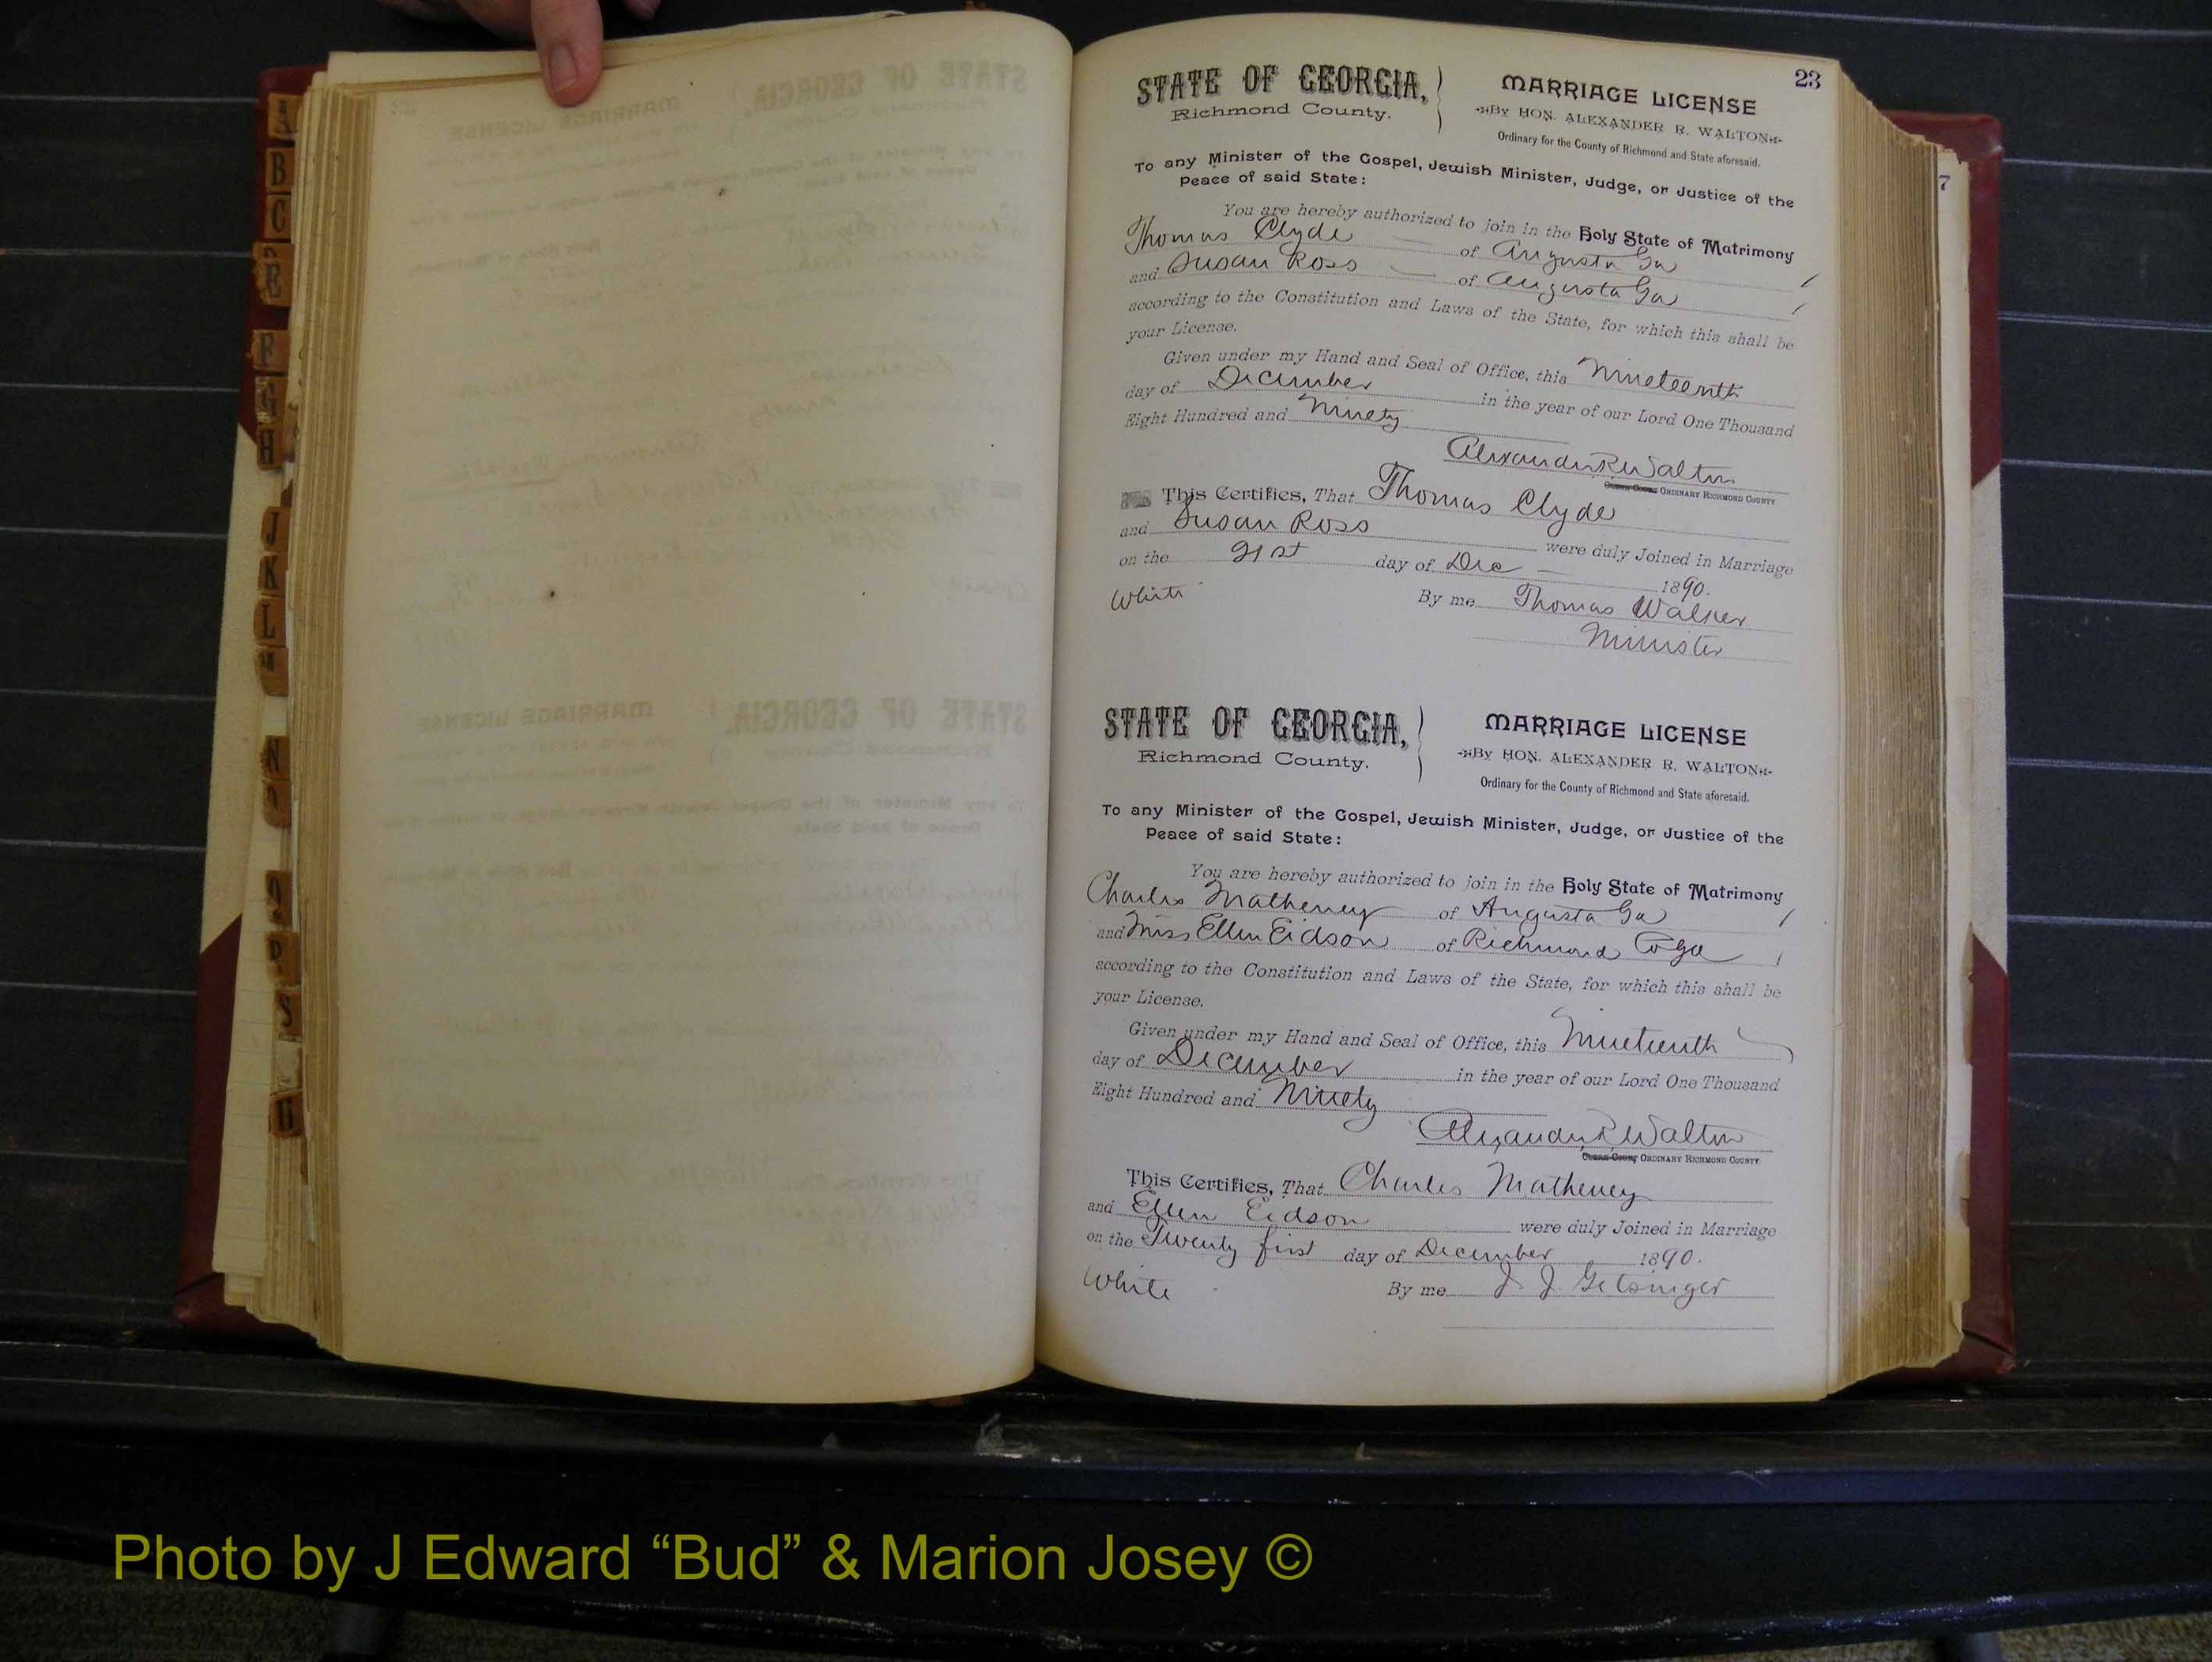 A
B
C
E
F
G
H
J
K
L
M
N
O
P
S
STATE OF GEORGIA,
Richmond County.
MARRIAGE LICENSE
By HON. ALEXANDER R. WALTON
Ordinary for the County of Richmond and State aforesaid.
23
7
To any Minister of the Gospel, Jewish Minister, Judge, or Justice of the
Peace of said State:
You are hereby authorized to join in the Holy State of Matrimony
Thomas Clyde of Augusta Ga
and Susan Ross of Augusta Ga
according to the Constitution and Laws of the State, for which this shall be
your License.
Given under my Hand and Seal of Office, this Nineteenth
day of December in the year of our Lord One Thousand
Eight Hundred and Ninety
Alexander R Walton
Clerk Court ORDINARY RICHMOND COUNTY
This Certifies, That Thomas Clyde
and Susan Ross were duly Joined in Marriage
on the 21st day of Dec 1890.
White By me Thomas Walker
Minister
STATE OF GEORGIA,
Richmond County.
MARRIAGE LICENSE
By HON. ALEXANDER R. WALTON
Ordinary for the County of Richmond and State aforesaid.
To any Minister of the Gospel, Jewish Minister, Judge, or Justice of the
Peace of said State:
You are hereby authorized to join in the Holy State of Matrimony
Charles Matheney of Augusta Ga
and Miss Ellen Eidson of Richmond Co Ga
according to the Constitution and Laws of the State, for which this shall be
your License.
Given under my Hand and Seal of Office, this Nineteenth
day of December in the year of our Lord One Thousand
Eight Hundred and Ninety
Alexander R Walton
Clerk Court ORDINARY RICHMOND COUNTY.
This Certifies, That Charles Matheney
and Ellen Eidson were duly Joined in Marriage
on the Twenty first day of December 1890.
White By me J. J. Getsinger
Photo by J Edward “Bud” & Marion Josey ©